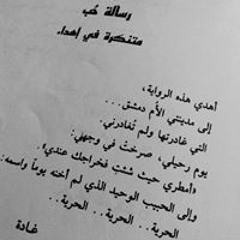 رسالة حُب
متنكرة في إهداء
أهدي هذه الرواية،
إلى مدينتي الأم دمشق...
التي غادرتها ولم تُغادرني.
يوم رحيلي، صرختْ في وجهي:
«أمطري حيث شئتِ فخراجك عندي».
وإلى الحبيب الوحيد الذي لم أخنه يوماً واسمه:
الحرية.. الحرية.. الحرية..
الحرية.. الحرية..
غادة